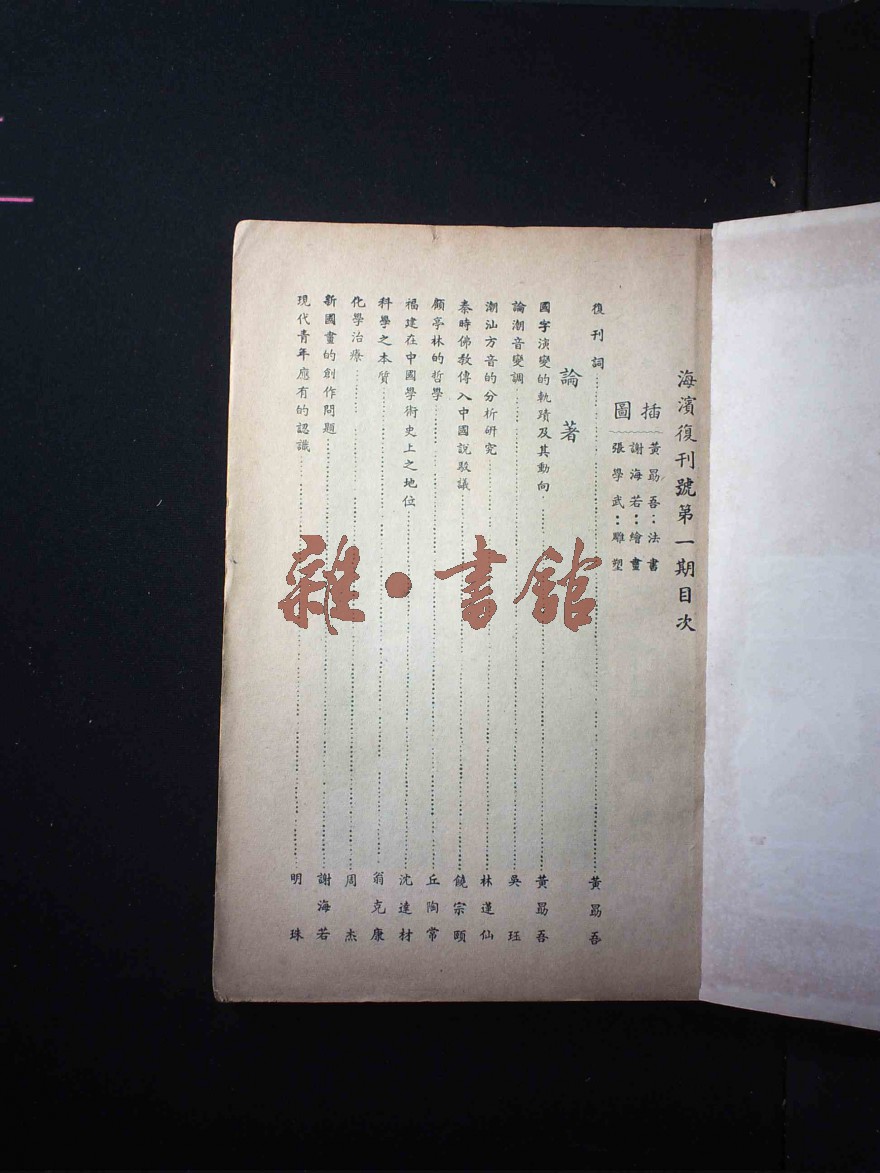 海濱復刊號第一期目次
插圖
黃勗吾：法書
謝海若：繪畫
張學武：雕塑
復刊詞 黃勗吾
論著
國字演變的軌蹟及其動向 黃勗吾
論潮音變調 吳珏
潮汕方音的分析研究 林蓮仙
秦時佛教傳入中國說駁議 饒宗頤
顧亭林的哲學 丘陶常
福建在中國學術史上之地位 沈達材
科學之本質 翁克康
化學治療 周杰
新國畫的創作問題 謝海若
現代青年應有的認識 明珠
雜·書館